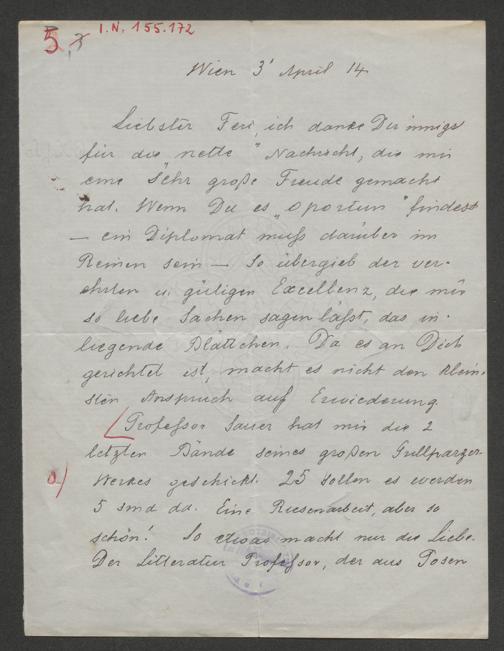 I.N. 155.172
5
Wien 3' April 14
Liebster Feri, ich danke Dir innigst
für die „nette" Nachricht, die mir
eine sehr große Freude gemacht
hat. Wenn Du es „oportun" findest
— ein Diplomat muß darüber im
Reinen sein — so übergieb der ver-
ehrten u. gütigen Excellenz, die mir
so liebe Sachen sagen läßt, das in-
liegende Blättchen. Da es an Dich
gerichtet ist, macht es nicht den klein-
sten Anspruch auf Erwiederung
Professor Sauer hat mir die 2
letzten Bände seines großen Grillparzer-
Werkes geschickt. 25 sollen es werden
5 sind da. Eine Riesenarbeit, aber so
schön! So etwas macht nur die Liebe.
Der Litteratur Professor, der aus Posen